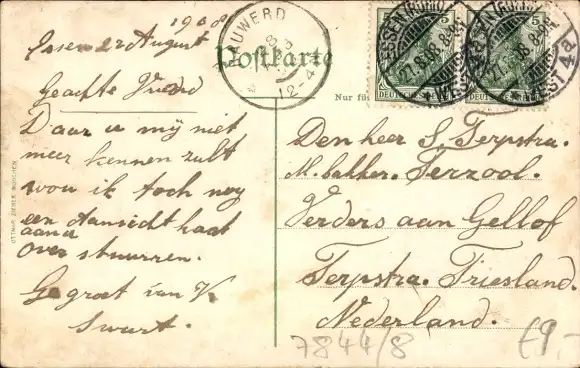 1908
Essen 22 August
Geachte Vriend
Daar u mij niet
meer kennen zult
wou ik toch nog
een Aansicht kaat
aan u
over stuurren.
Gegroet van K
Swart.
UWERD
12-4
Postkarte
Nur für
ESSEN (RUHR)
27.8.08. 8-9
* WEST 4a
ESSEN (RUHR)
27.8.08. 8-9
* WEST 4a
5 5
DEUTSCHES REICH
Den heer S. Terpstra.
M. bakker. Terzool.
Verders aan Gellof
Terpstra. Friesland.
Nederland.
7844/8
£9,-
OTTMAR ZIEHER, MÜNCHEN